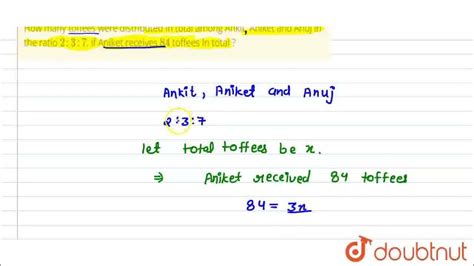 How many toffees were distributed in total among Ankit, Aniket and Anuj in
the ratio 2:3:7. if Aniket receives 84 toffees in total ?
Ankit, Aniket and Anuj
2:3:7
let total toffees be x.
⇒ Aniket received 84 toffees
84 = 3x
doubtnut